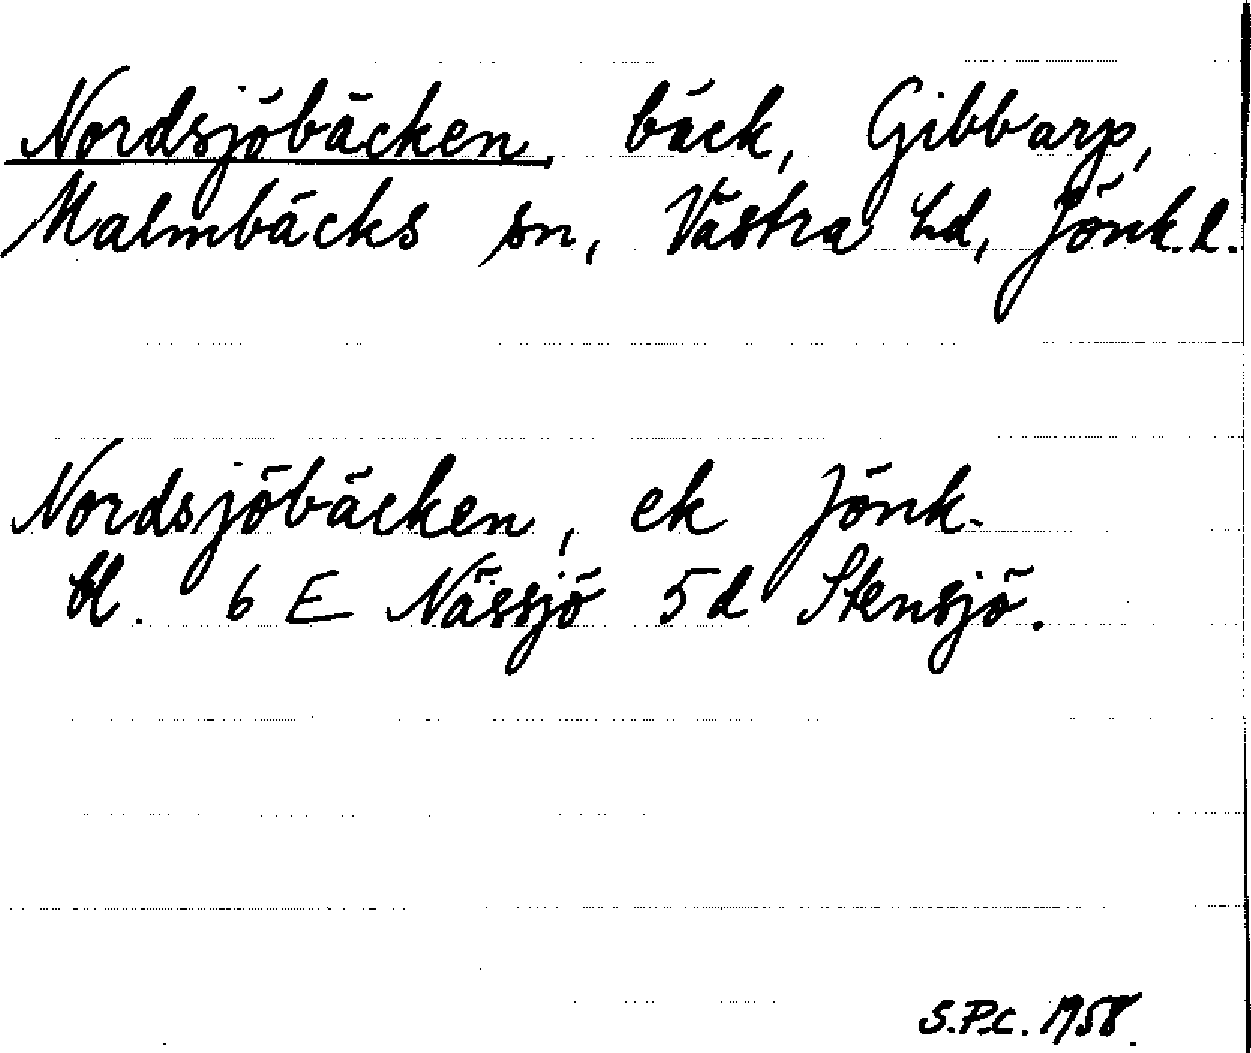 Nordsjöbäcken, bäck, Gibbarp,
Malmbäcks sn, Västra hd, Jönk.l.
Nordsjöbäcken, ek Jönk.
bl. 6 E Nässjö 5 d Stensjö.
S.P.C. 1958.